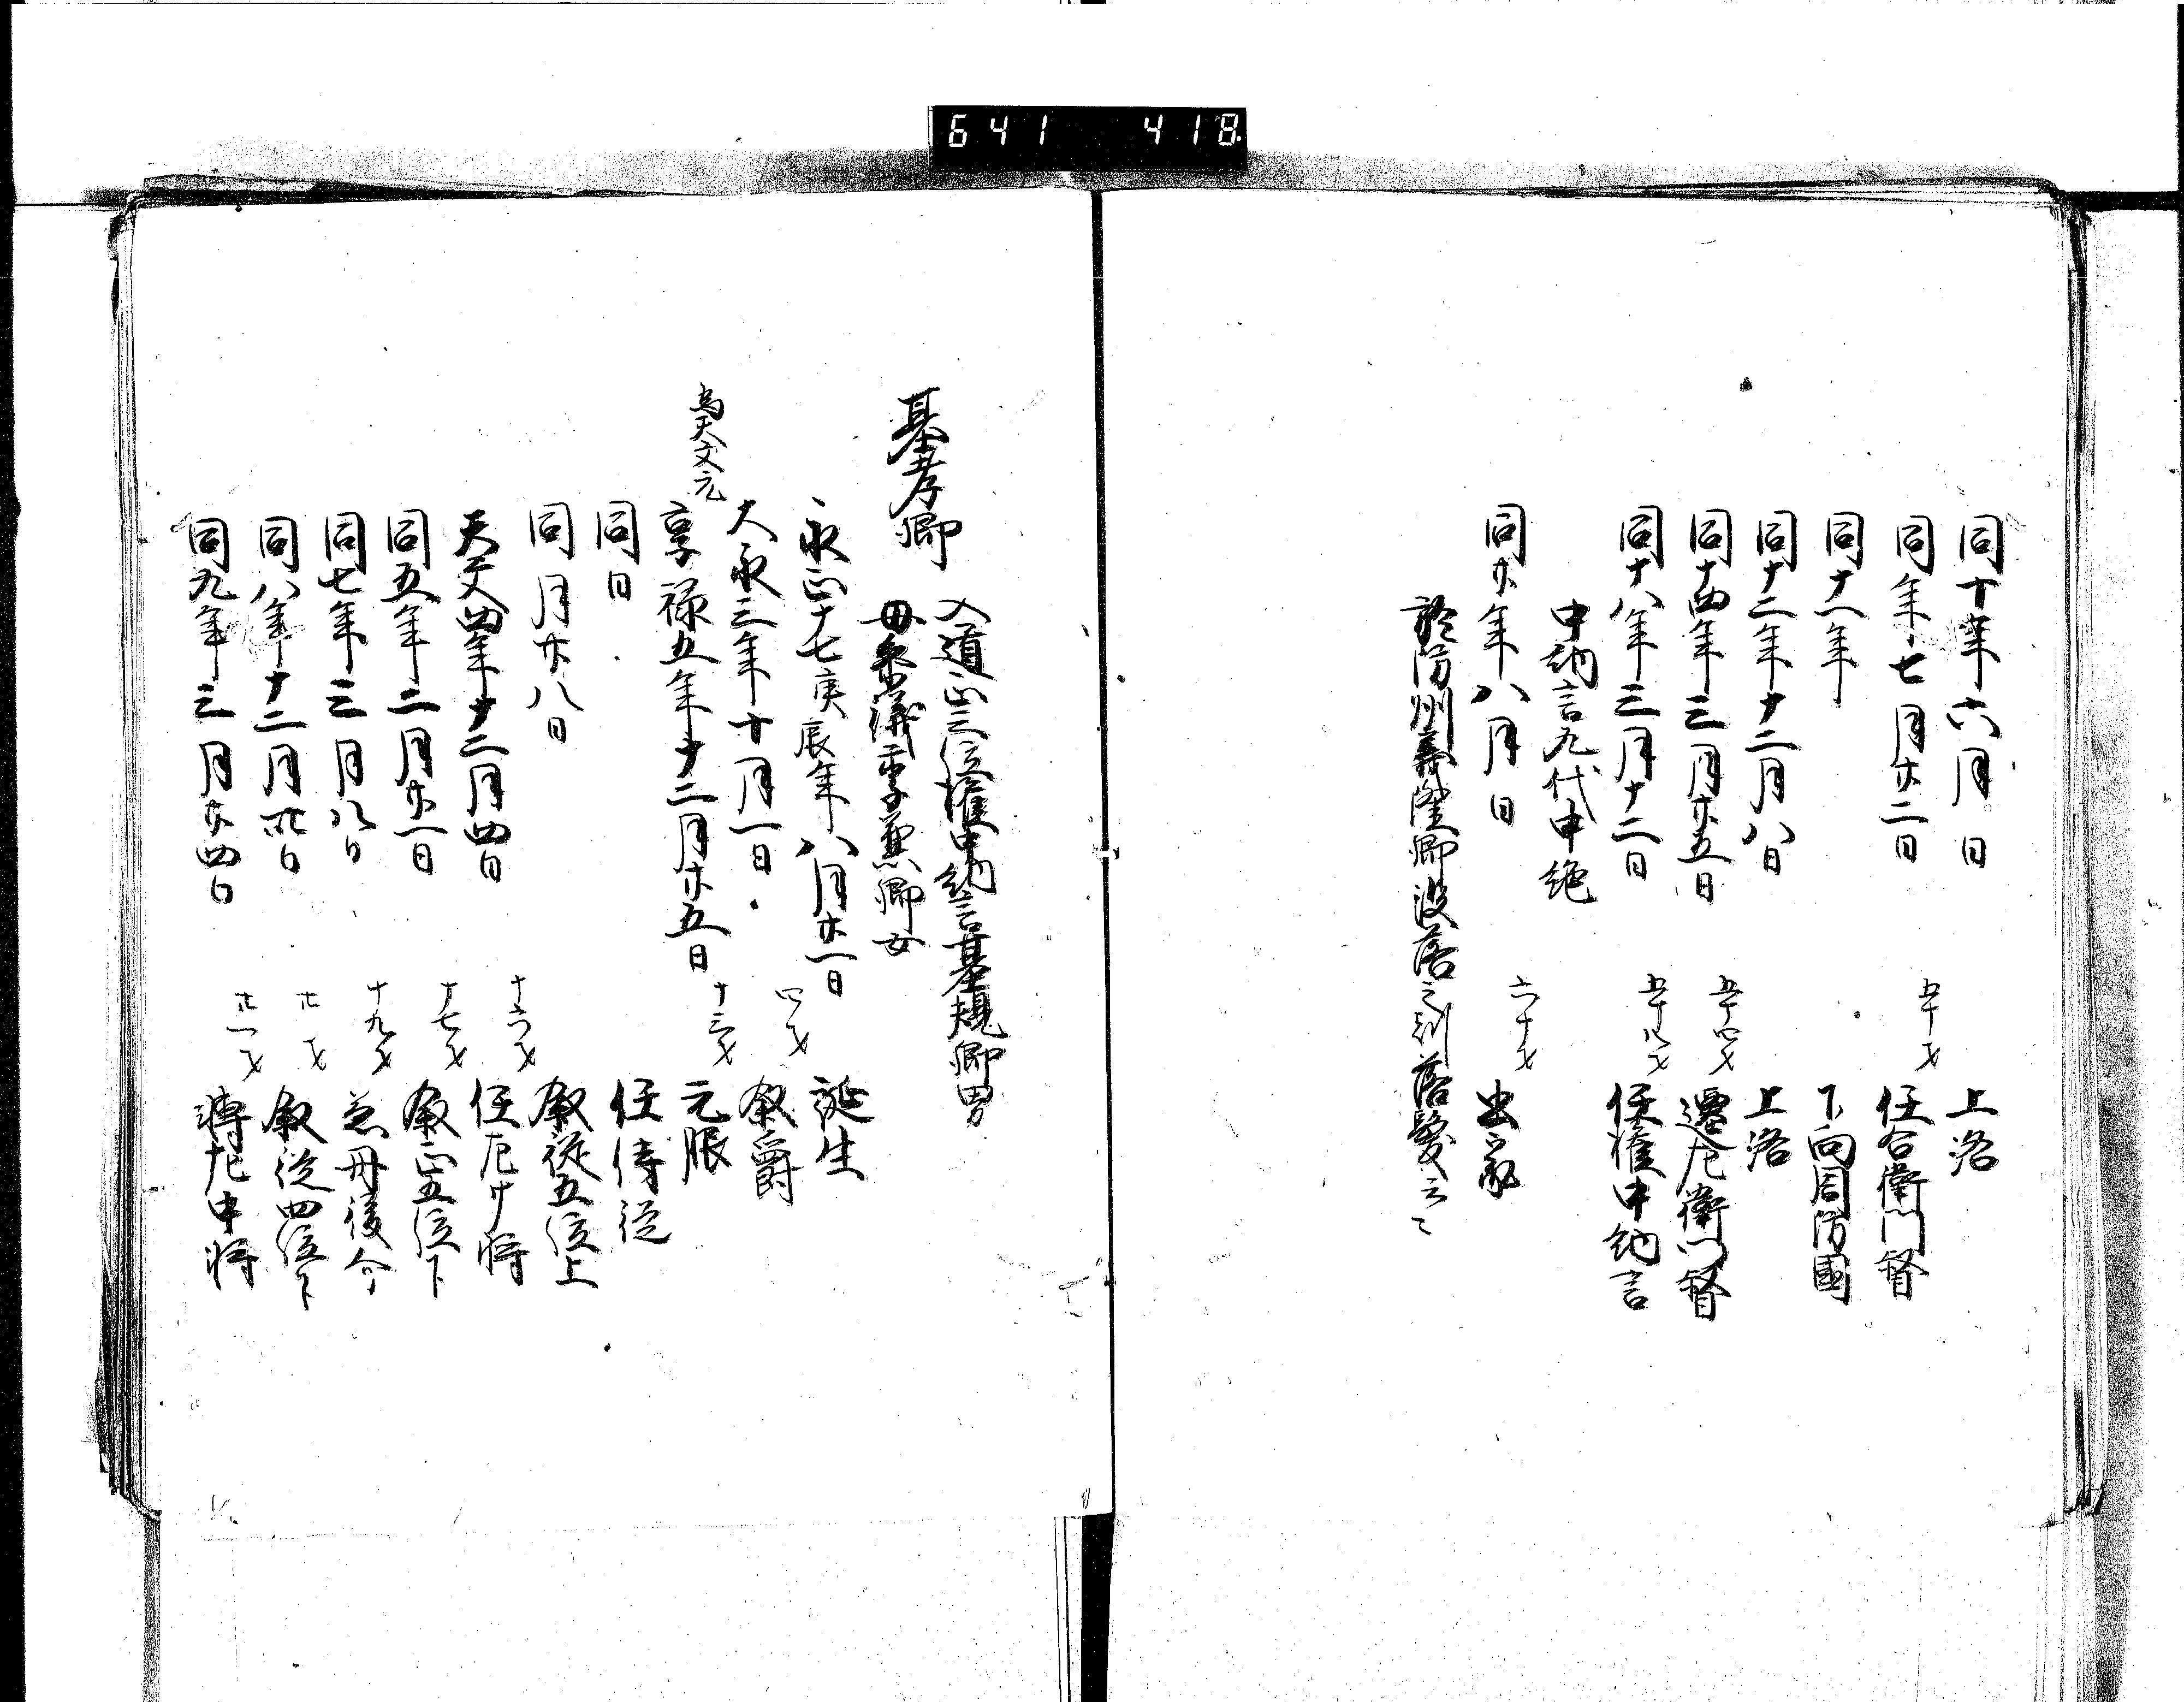 641 418
同十年六月 日 上洛
同年七月廿二日 五十才 任右衛門督
同十一年 下向周防國
同十二年十二月八日 上洛
同十四年三月廿五日 五十四才 遷左衛門督
同十八年三月十二日 五十八才 任権中納言
中納言九代中絶
同廿年八月 日 六十才 出家
於防州義隆卿没落之刻落髪云々
基孝卿 入道正三位権中納言基規卿男
母参議季兼卿女
永正十七庚辰年八月廿一日 誕生
大永三年十一月一日 四才 叙爵
為天文元
享禄五年十二月廿五日 十三才 元服
同日 任侍従
同月廿八日 叙従五位上
天文四年十二月四日 十六才 任左少将
同五年二月廿一日 十七才 叙正五位下
同七年三月八日 十九才 兼丹後介
同八年十二月 日 廿才 叙従四位下
同九年三月廿四日 廿一才 轉左中将